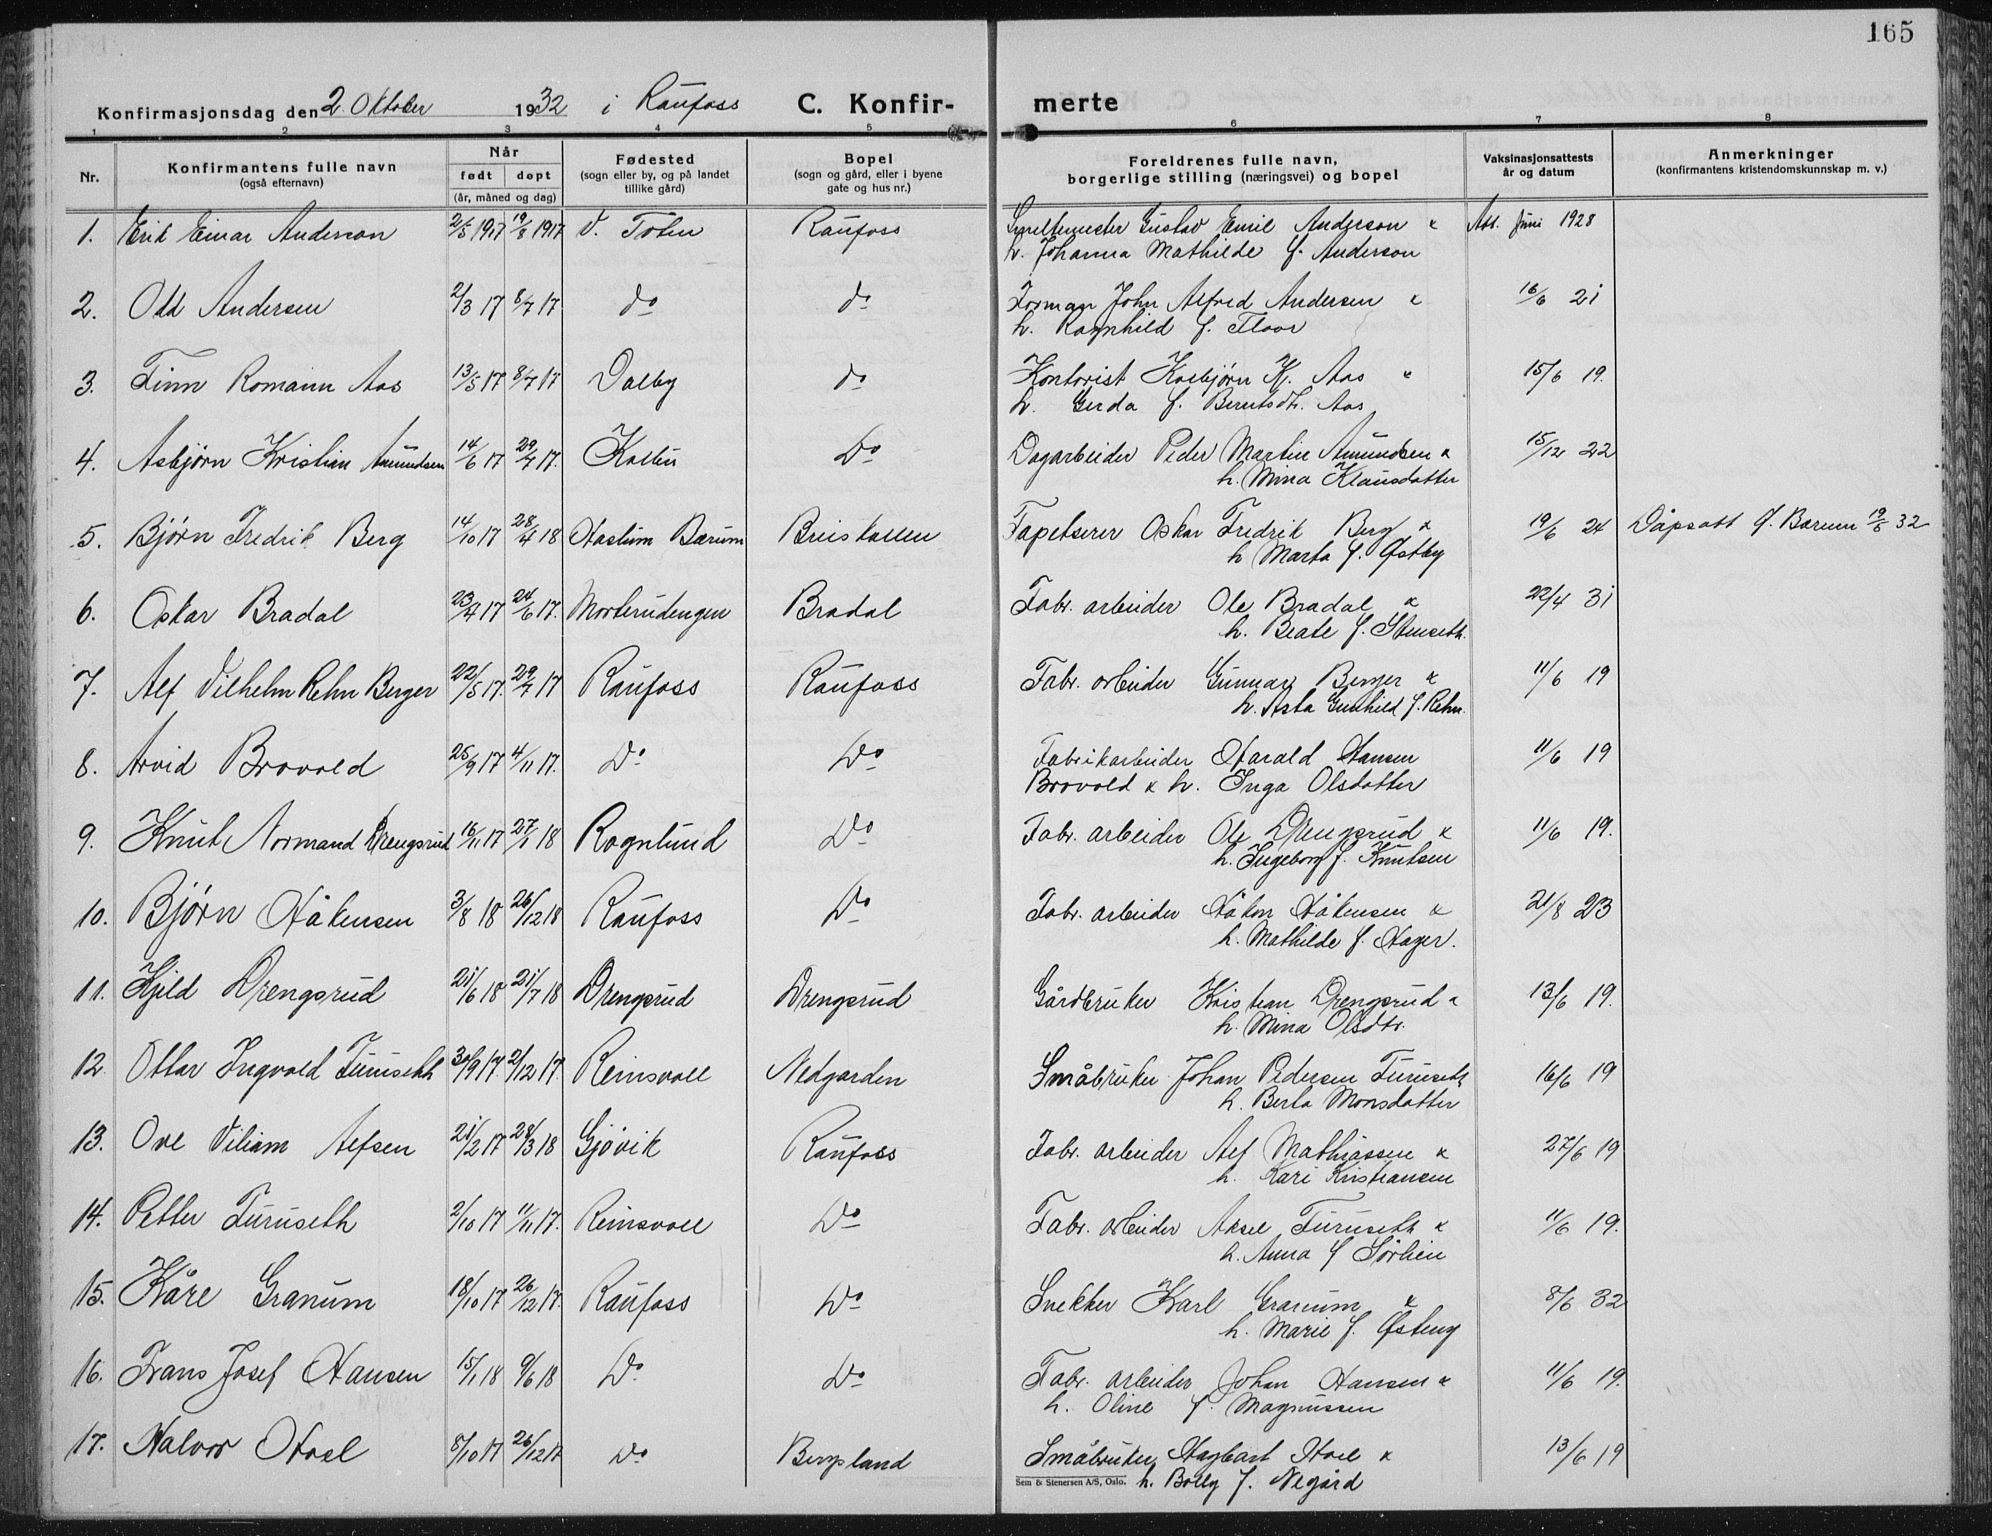 165
Konfirmasjonsdag den 2. Oktober 1932 i Raufoss C. Konfir- merte
1 2 3 4 5 6 7 8
Nr. Konfirmantens fulle navn (også efternavn) Når født døpt (år, måned og dag) Fødested (sogn eller by, og på landet tillike gård) Bopel (sogn og gård, eller i byene gate og hus nr.) Foreldrenes fulle navn, borgerlige stilling (næringsvei) og bopel Vaksinasjonsattests år og datum Anmerkninger (konfirmantens kristendomskunnskap m. v.)
1. Erik Einar Anderson 2/5 1917 19/8 1917 V. Toten Raufoss Smeltemester Gustav Emil Anderson & Att. Juni 1928
h. Johanna Mathilde f. Anderson
2. Odd Andersen 2/3 17 8/7 17 do do Forman John Alfred Andersen & 16/6 21
h. Ragnhild f. Floor
3. Finn Romann Aas 13/5 17 8/7 17 Dalby do Kontorist Kolbjørn K. Aas & 15/6 19.
h. Gerda f. Berntsdt. Aas
4. Asbjørn Kristian Amundsen 14/6 17 29/7 17. Kolbu Do Dagarbeider Peder Martin Amundsen & 15/12 22
h. Mina Klausdatter
5. Bjørn Fredrik Berg 14/10 17 28/4 18 Haslum Bærum Breiskallen Tapetserer Oskar Fredrik Berg & 19/6 24 Dåpsatt f. Bærum 19/8 32
h Marta f. Østby
6. Oskar Bradal 23/4 17 24/6 17. Morterudengen Bradal Fabr. arbeider Ole Bradal & 22/4 31
h. Beate f. Stenseth.
7. Alf Vilhelm Rehn Berger 22/5 17. 29/7 17 Raufoss Raufoss Fabr. arbeider Gunnar Berger & 11/6 19
h. Asta Gunhild f. Rehn.
8. Arvid Brovold 25/9 17 4/11 17. Do Do Fabrikarbeider Harald Hansen 11/6 19
Brovold & h. Inga Olsdatter
9. Knut Normand Drengsrud 16/11 17 27/1 18 Rognlund Do Fabr. arbeider Ole Drengsrud & 11/6 19.
h. Ingeborg f. Knutsen
10. Bjørn Håkensen 3/8 18 26/12 18 Raufoss Do Fabr. arbeider Håkon Håkensen & 21/8 23
h. Mathilde f. Hager.
11. Kjeld Drengsrud 21/6 18 21/7 18 Drengsrud Drengsrud Gårdbruker Kristian Drengsrud & 13/6 19.
h. Mina Olsdtr.
12. Ottar Ingvald Furuseth 30/9 17. 2/12 17. Reinsvoll Nedgarden Småbruker Johan Pedersen Furuseth 16/6 19
h. Berta Monsdatter
13. Ove Viliam Alfsen 21/2 17 28/3 18 Gjøvik Raufoss Fabr. arbeider Alf Mathiassen & 27/6 19
h. Kari Kristiansen
14. Petter Furuseth 2/10 17 11/11 17. Reinsvoll Do Fabr. arbeider Aksel Furuseth & 11/6 19.
h. Anna f Sørlien
15. Kåre Granum 18/10 17 26/12 17. Raufoss Do Snekker Karl Granum & 8/6 32
h. Marie f. Østeng
16. Frans Josef Hansen 15/1 18 9/6 18 Do Do Fabr. arbeider Johan Hansen & 11/6 19.
h. Oline f. Magnussen
17. Halvor Hoel 8/10 17 26/12 17 Do Bergsland Småbruker Hagbart Hoel & 13/6 19
Sem & Stenersen A/S, Oslo. h. Bolly f. Negård